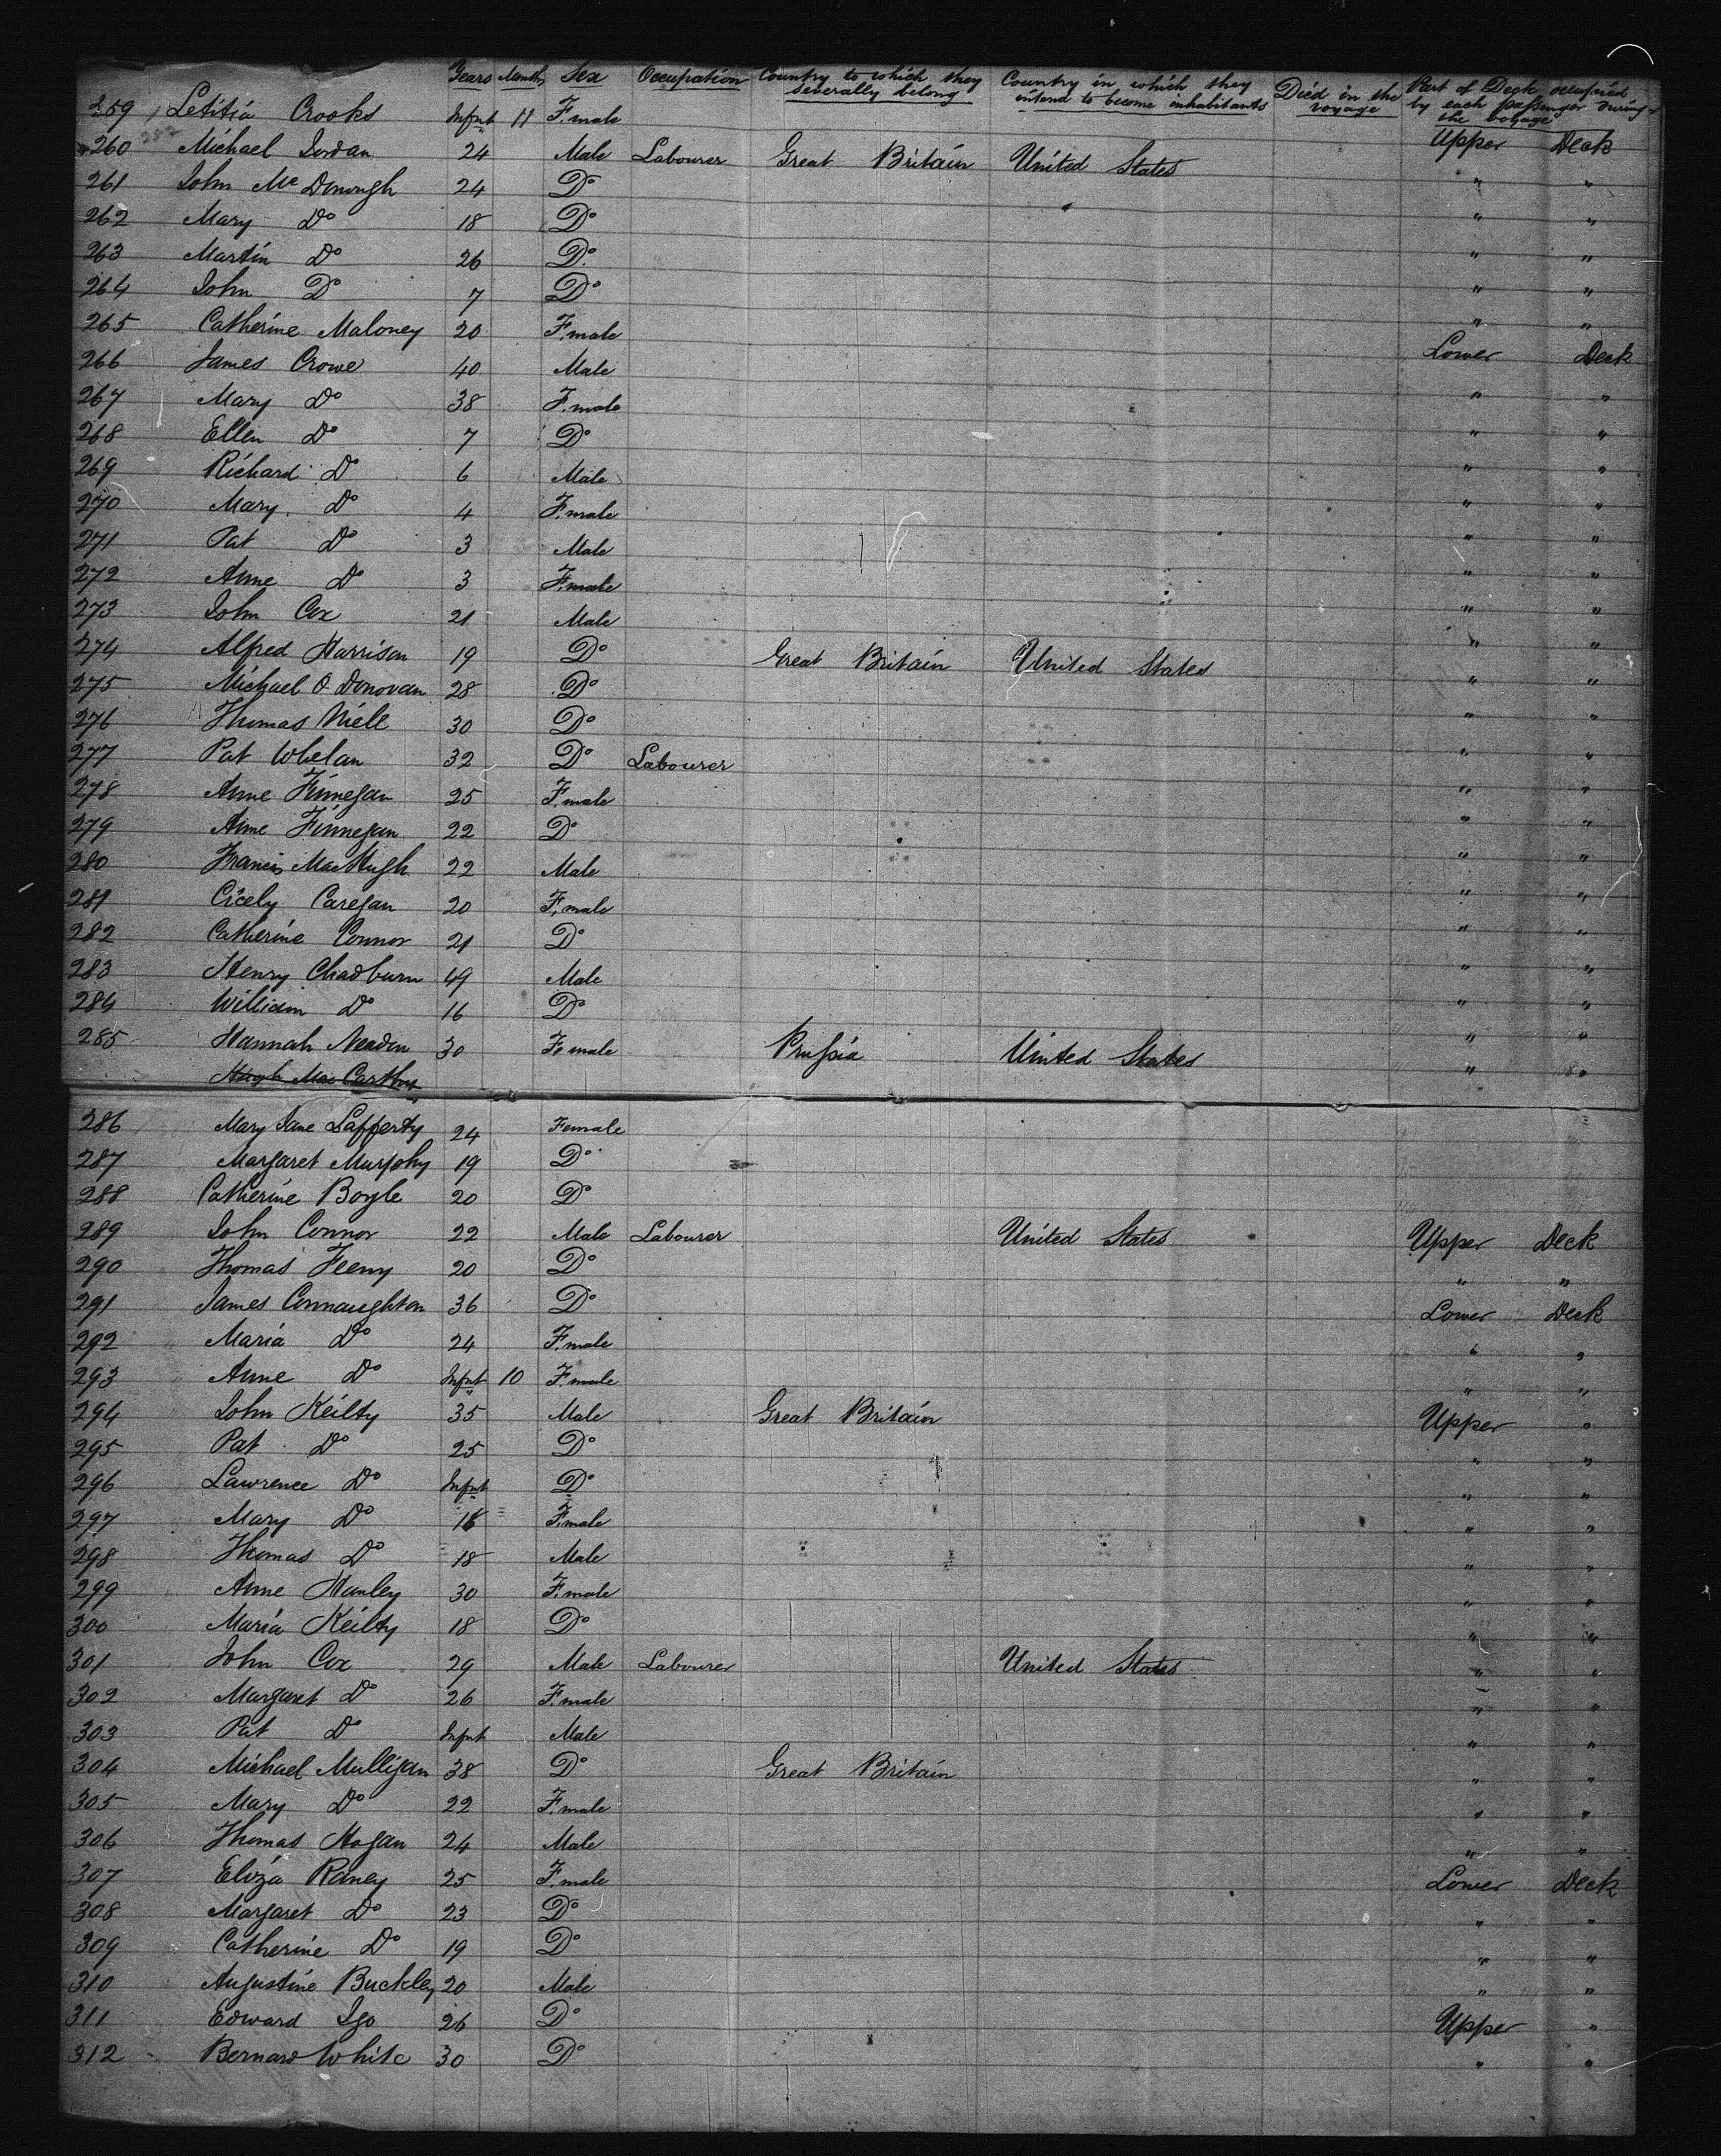 Years Months Sex Occupation Country to which they severally belong Country in which they intend to become inhabitants Died in the voyage Part of Deck occupied by each passenger during the voyage
259 Letitia Crooks Infnt 11 F.male Upper Deck
260 Michael Jordan 24 Male Labourer Great Britain United States " "
261 John Mc Donough 24 Do " "
262 Mary Do 18 Do " "
263 Martin Do 26 Do " "
264 John Do 7 Do " "
265 Catherine Maloney 20 F.male Lower Deck
266 James Crowe 40 Male " "
267 Mary Do 38 F.male " "
268 Ellen Do 7 Do " "
269 Richard Do 6 Male " "
270 Mary Do 4 F.male " "
271 Pat Do 3 Male " "
272 Anne Do 3 F.male " "
273 John Cox 21 Male " "
274 Alfred Harrison 19 Do Great Britain United States " "
275 Michael O Donovan 28 Do " "
276 Thomas Niell 30 Do " "
277 Pat Whelan 32 Do Labourer " "
278 Anne Finnegan 25 F.male " "
279 Anne Finnegan 22 Do " "
280 Francis MacHugh 22 Male " "
281 Cicely Caregan 20 F.male " "
282 Catherine Connor 21 Do " "
283 Henry Chadburn 49 Male " "
284 William Do 16 Do " "
285 Hannah 30 Female Prussia United States " "
Hugh MacCarthy
286 Mary Jane Lafferty 24 Female
287 Margaret Murphy 19 Do
288 Catherine Boyle 20 Do
289 John Connor 22 Male Labourer United States Upper Deck
290 Thomas Feeny 20 Do " "
291 James Connaughton 36 Do Lower Deck
292 Maria Do 24 F.male " "
293 Anne Do Infnt 10 F.male " "
294 John Keilty 35 Male Great Britain Upper "
295 Pat Do 25 Do " "
296 Lawrence Do Infnt Do " "
297 Mary Do F.male " "
298 Thomas Do 18 Male " "
299 Anne Hanley 30 F.male " "
300 Maria Keilty 18 Do " "
301 John Cox 29 Male Labourer United States " "
302 Margaret Do 26 F.male " "
303 Pat Do Infnt Male " "
304 Michael Mulligan 38 Do Great Britain " "
305 Mary Do 22 F.male " "
306 Thomas Hogan 24 Male " "
307 Eliza Raney 25 F.male Lower Deck
308 Margaret Do 23 Do " "
309 Catherine Do 19 Do " "
310 Augustine Buckley 20 Male " "
311 Edward Igo 26 Do Upper "
312 Bernard White 30 Do " "